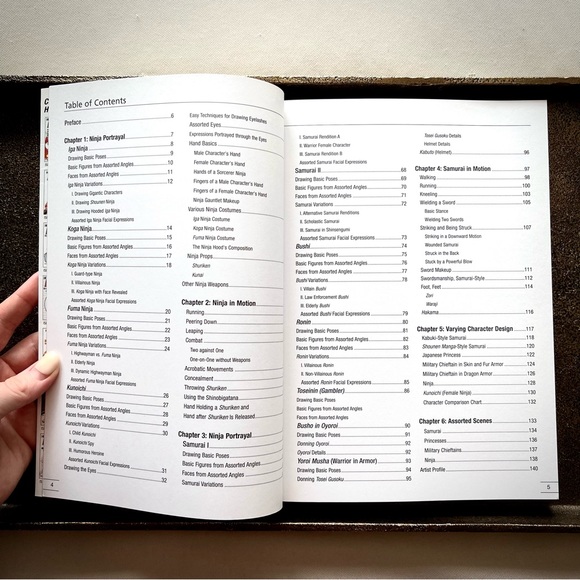 Table of Contents
Preface 6
Chapter 1: Ninja Portrayal 7
Iga Ninja 8
Drawing Basic Poses 9
Basic Figures from Assorted Angles 10
Faces from Assorted Angles 11
Iga Ninja Variations 12
I. Drawing Gigantic Characters
II. Drawing Shounen Ninja
III. Drawing Hooded Iga Ninja
Assorted Iga Ninja Facial Expressions
Koga Ninja 14
Drawing Basic Poses 15
Basic Figures from Assorted Angles 16
Faces from Assorted Angles 17
Koga Ninja Variations 18
I. Guard-type Ninja
II. Villainous Ninja
III. Koga Ninja with Face Revealed
Assorted Koga Ninja Facial Expressions
Fuma Ninja 20
Drawing Basic Poses 21
Basic Figures from Assorted Angles 22
Faces from Assorted Angles 23
Fuma Ninja Variations 24
I. Highwayman vs. Fuma Ninja
II. Elderly Ninja
III. Dynamic Highwayman Ninja
Assorted Fuma Ninja Facial Expressions
Kunoichi 26
Drawing Basic Poses 27
Basic Figures from Assorted Angles 28
Faces from Assorted Angles 29
Kunoichi Variations 30
I. Child Kunoichi
II. Kunoichi Spy
III. Humorous Heroine
Assorted Kunoichi Facial Expressions 31
Drawing the Eyes 32
4
Easy Techniques for Drawing Eyelashes
Assorted Eyes
Expressions Portrayed through the Eyes
Hand Basics
Male Character's Hand
Female Character's Hand
Hands of a Sorcerer Ninja
Fingers of a Male Character's Hand
Fingers of a Female Character's Hand
Ninja Gauntlet Makeup
Various Ninja Costumes
Iga Ninja Costume
Koga Ninja Costume
Fuma Ninja Costume
The Ninja Hood's Composition
Ninja Props
Shuriken
Kunai
Other Ninja Weapons
Chapter 2: Ninja in Motion
Running
Peering Down
Leaping
Combat
Two against One
One-on-One without Weapons
Acrobatic Movements
Concealment
Throwing Shuriken
Using the Shinobigatana
Hand Holding a Shuriken and
Hand after Shuriken Is Released
Chapter 3: Ninja Portrayal
Samurai I
Drawing Basic Poses
Basic Figures from Assorted Angles
Faces from Assorted Angles
Samurai Variations
I. Samurai Rendition A
II. Warrior Female Character
III. Samurai Rendition B
Assorted Samurai Facial Expressions
Samurai II 68
Drawing Basic Poses 69
Basic Figures from Assorted Angles 70
Faces from Assorted Angles 71
Samurai Variations 72
I. Alternative Samurai Renditions
II. Scholastic Samurai
III. Samurai in Shinsengumi
Assorted Samurai Facial Expressions 73
Bushi 74
Drawing Basic Poses 75
Basic Figures from Assorted Angles 76
Faces from Assorted Angles 77
Bushi Variations 78
I. Villain Bushi
II. Law Enforcement Bushi
III. Elderly Bushi
Assorted Bushi Facial Expressions 79
Ronin 80
Drawing Basic Poses 81
Basic Figures from Assorted Angles 82
Faces from Assorted Angles 83
Ronin Variations 84
I. Villainous Ronin
II. Non-Villainous Ronin
Assorted Ronin Facial Expressions 85
Toseinin (Gambler) 86
Drawing Basic Poses
Basic Figures from Assorted Angles
Faces from Assorted Angles
Busho in Oyoroi 90
Drawing Basic Poses 91
Donning Oyoroi 92
Oyoroi Details 92
Yoroi Musha (Warrior in Armor) 93
Drawing Basic Poses 94
Donning Tosei Gusoku 95
Tosei Gusoku Details
Helmet Details
Kabuto (Helmet) 96
Chapter 4: Samurai in Motion 97
Walking 98
Running 100
Kneeling 103
Wielding a Sword 105
Basic Stance
Wielding Two Swords
Striking and Being Struck 107
Striking in a Downward Motion
Wounded Samurai
Struck in the Back
Stuck by a Powerful Blow
Sword Makeup 111
Swordsmanship, Samurai-Style 112
Foot, Feet 114
Zori
Waraji
Hakama 116
Chapter 5: Varying Character Design 117
Kabuki-Style Samurai 118
Shounen Manga-Style Samurai 120
Japanese Princess 122
Military Chieftain in Skin and Fur Armor 124
Military Chieftain in Dragon Armor 126
Ninja 128
Kunoichi (Female Ninja) 130
Character Comparison Chart 132
Chapter 6: Assorted Scenes 133
Samurai 134
Princesses 136
Military Chieftains 137
Ninja 138
Artist Profile 140
5